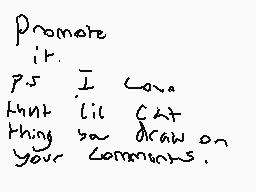 Promote
it.
P.S I Love
that lil cat
thing you draw on
your comments.